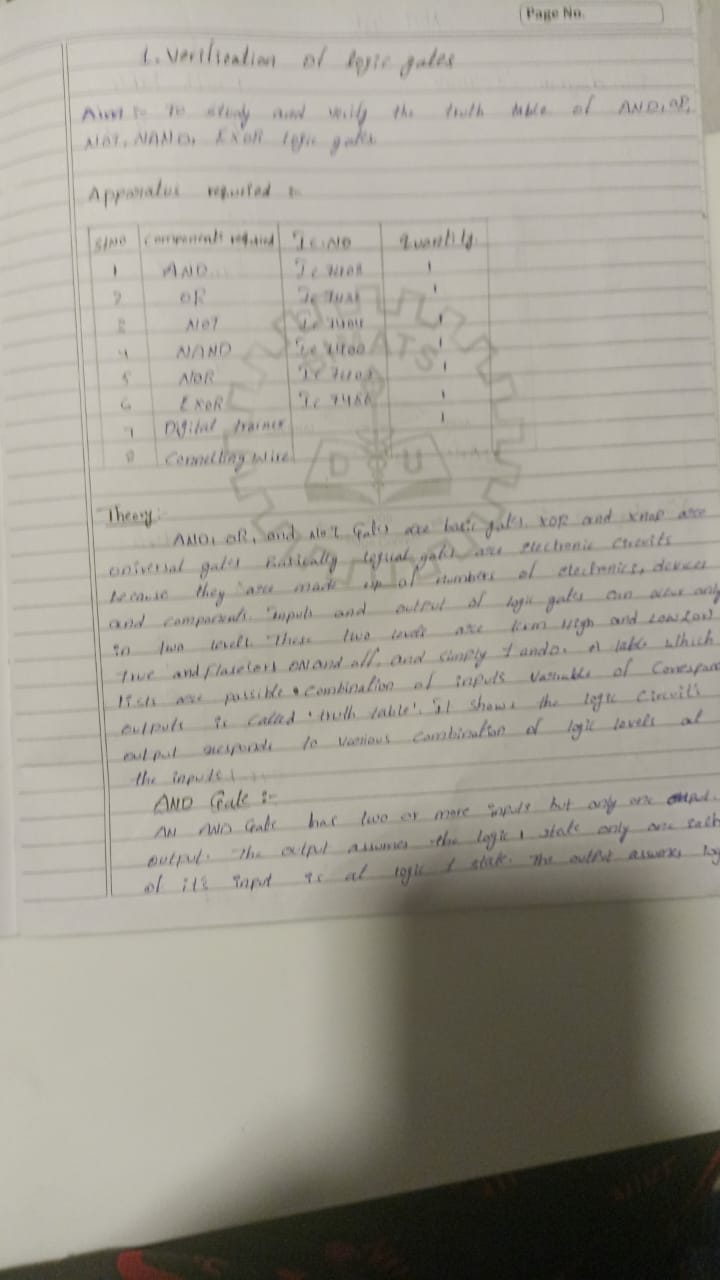 Page No.
1. Verification of logic gates
Aim :- To study and verify the truth table of AND, OR,
NOT, NAND, EXOR logic gates
Apparatus required :-
Sl.No Components required Ic.No Quantity
1 AND Ic 7408 1
2 OR 1
3 NOT Ic 7404 1
4 NAND Ic 7400 1
5 NOR 1
6 EXOR Ic 7486 1
7 Digital trainer 1
8 Connecting wire
ATS
D U
Theory :-
AND, OR, and NOT Gates are basic gates. XOR and are
universal gates Basically gates are electronic circuits
because they are made up of numbers of electronics, devices
and components. Inputs and output of logic gates can occur only
in two levels. These two levels are term High and Low
true and on and off, and simply 1 and 0. A table which
lists are possible combination of inputs of
outputs is called 'truth table'. It shows the logic circuit's
output to various combination of logic levels at
the inputs.
AND Gate :-
AN AND Gate has two or more inputs but only one output.
output. The output assumes the logic 1 state only one each
of its input is at logic 1 state. The output assumes